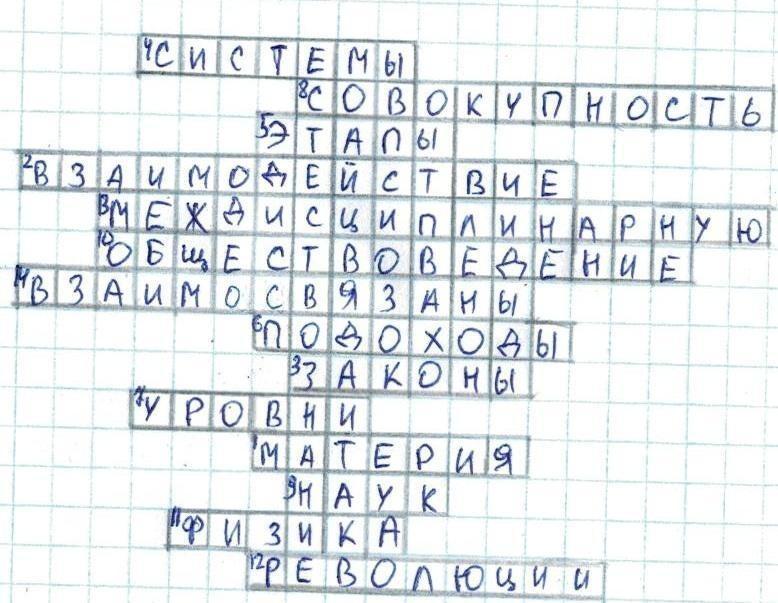 4СИСТЕМЫ
8СОВОКУПНОСТЬ
5ЭТАПЫ
2ВЗАИМОДЕЙСТВИЕ
13МЕЖДИСЦИПЛИНАРНУЮ
10ОБЩЕСТВОВЕДЕНИЕ
14ВЗАИМОСВЯЗАНЫ
6ПОДОХОДЫ
3ЗАКОНЫ
7УРОВНИ
1МАТЕРИЯ
9НАУК
11ФИЗИКА
12РЕВОЛЮЦИИ